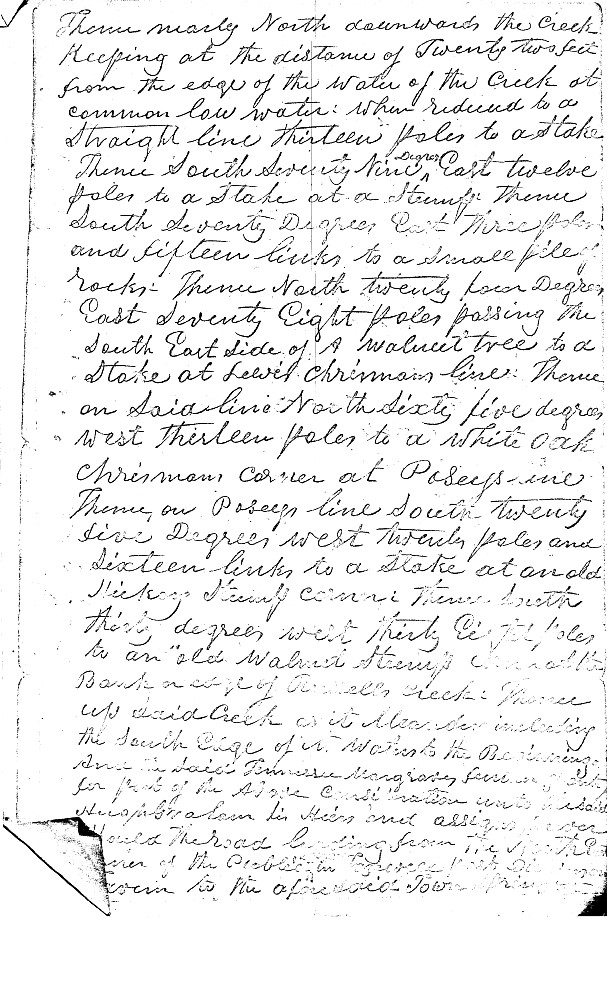 Thence nearly North downwards the Creek
Keeping at the distance of Twenty two feet
from the edge of the Water of the Creek at
common low water: when reduced to a
straight line thirteen poles to a Stake
Thence South Seventy Nine Degrees East twelve
poles to a Stake at a Stump: Thence
South Seventy Degrees East Three poles
and fifteen links to a small pile of
rocks: Thence North twenty four Degrees
East Seventy Eight poles passing the
South East Side of A walnut tree to a
Stake at Lewis Chrismans line: Thence
on Said line North Sixty five degrees
west thirteen poles to a white Oak
Chrismans corner at Poseys line
Thence on Poseys line South twenty
five Degrees west twenty poles and
Sixteen links to a Stake at an old
Hickory Stump corner: Thence South
thirty degrees west thirty Eight poles
to an old Walnut Stump on the
Bank edge of Creek: Thence
up Said Creek as it Meanders including
the South Edge of its Waters to the Beginning
And the Said Tennessee Margraves
for part of the Above Consideration unto the said
Hugh his Heirs and assigns forever
the road leading from the North
of the Public
to the aforesaid Town Spring